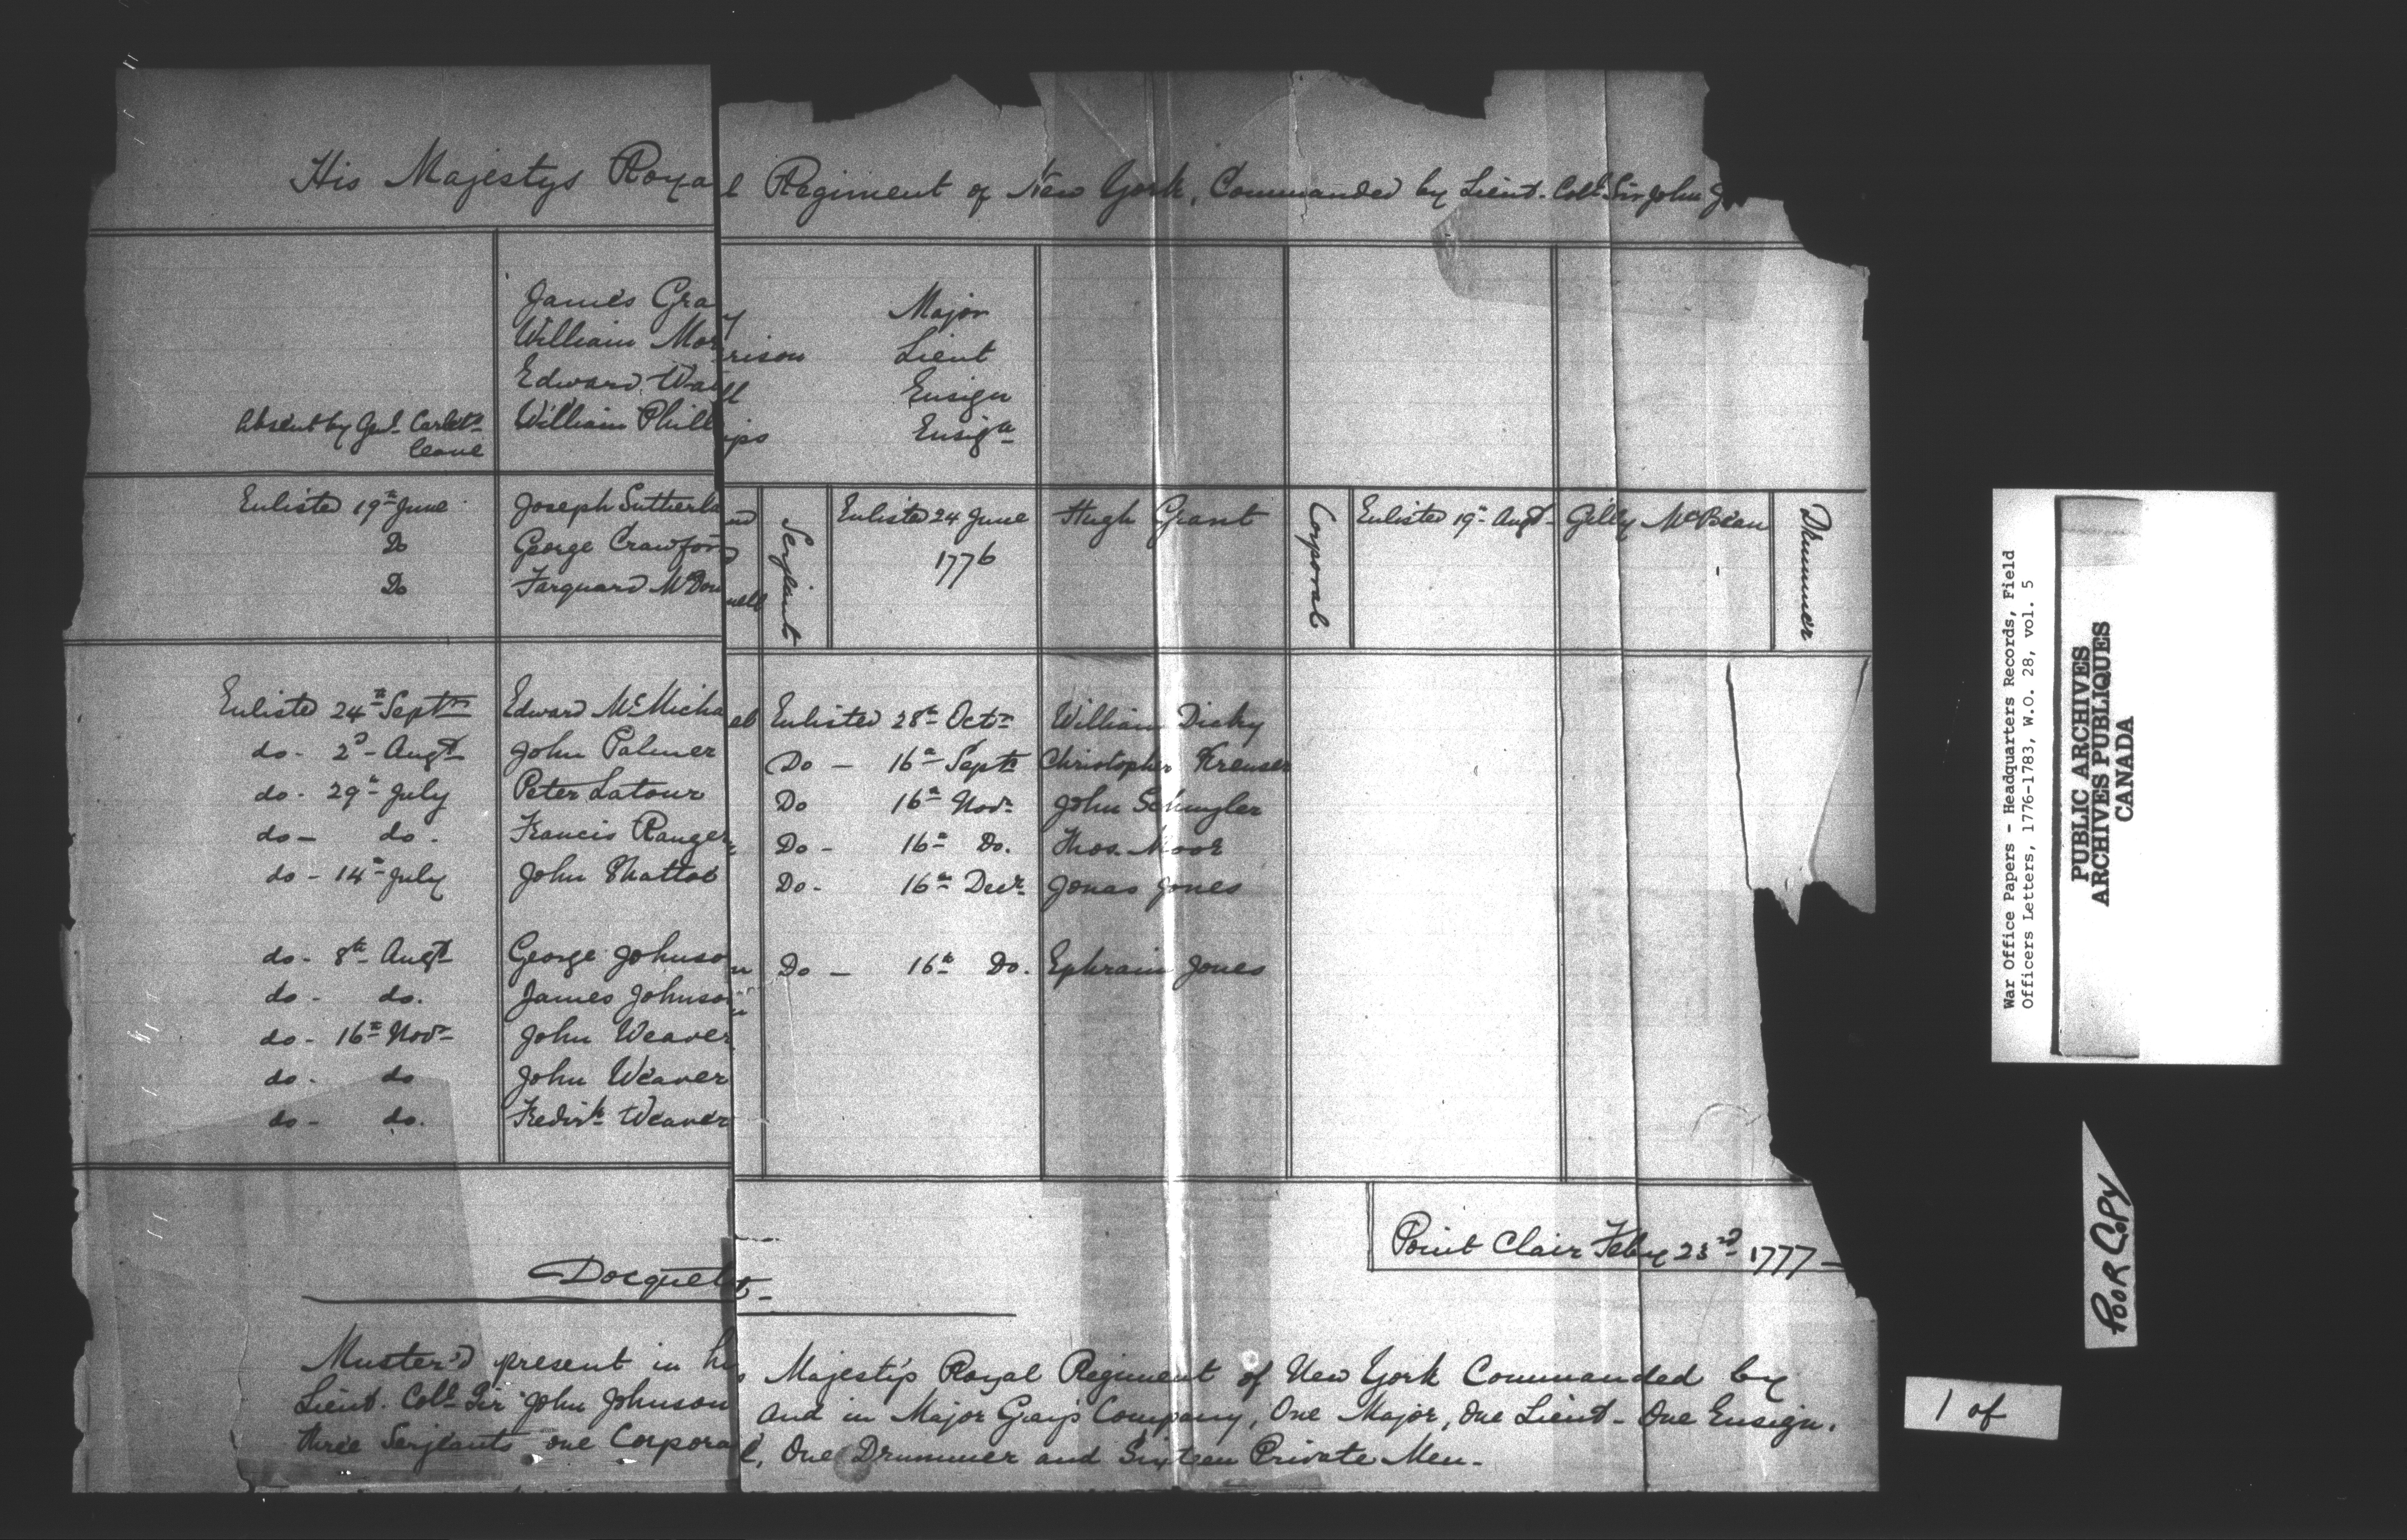 His Majestys Royal Regiment of New York, Commanded by Lieut. Coll. Sir John J
James Gray Major
William Morrison Lieut
Edward Wall Ensign
Absent by Genl. Carlet. leave William Phillips Ensign
Enlisted 19th June Joseph Sutherland
Do George Crawford
Do Farquard McDonnell
Serjeant
Enlisted 24 June 1776 Hugh Grant
Corporal
Enlisted 19th Augt. Gilly McBean
Drummer
Enlisted 24th Septr Edward McMichael
do - 2d Augt John Palmer
do - 29th July Peter Latour
do - do. Francis Ranger
do - 14th July John Shattoe
do - 8th Augt George Johnson
do - do. James Johnson
do - 16th Novr John Weaver
do - do John Weaver
do - do. Fredrk Weaver
Enlisted 28th Octr William Dicky
Do - 16th Septr Christopher Kreuser
Do 16th Novr John Schuyler
Do - 16th Do. Thos. Moor
Do - 16th Decr Jonas Jones
Do - 16th Do. Ephraim Jones
Point Clair Feby 23d 1777 -
Docquett -
Muster'd present in his Majesty's Royal Regiment of New York Commanded by
Lieut. Coll. Sir John Johnson and in Major Gray's Company, One Major, One Lieut - One Ensign,
three Serjeants one Corporal, One Drummer and Sixteen Private Men.
War Office Papers - Headquarters Records, Field
Officers Letters, 1776-1783, W.O. 28, vol. 5
PUBLIC ARCHIVES
ARCHIVES PUBLIQUES
CANADA
POOR COPY
1 of